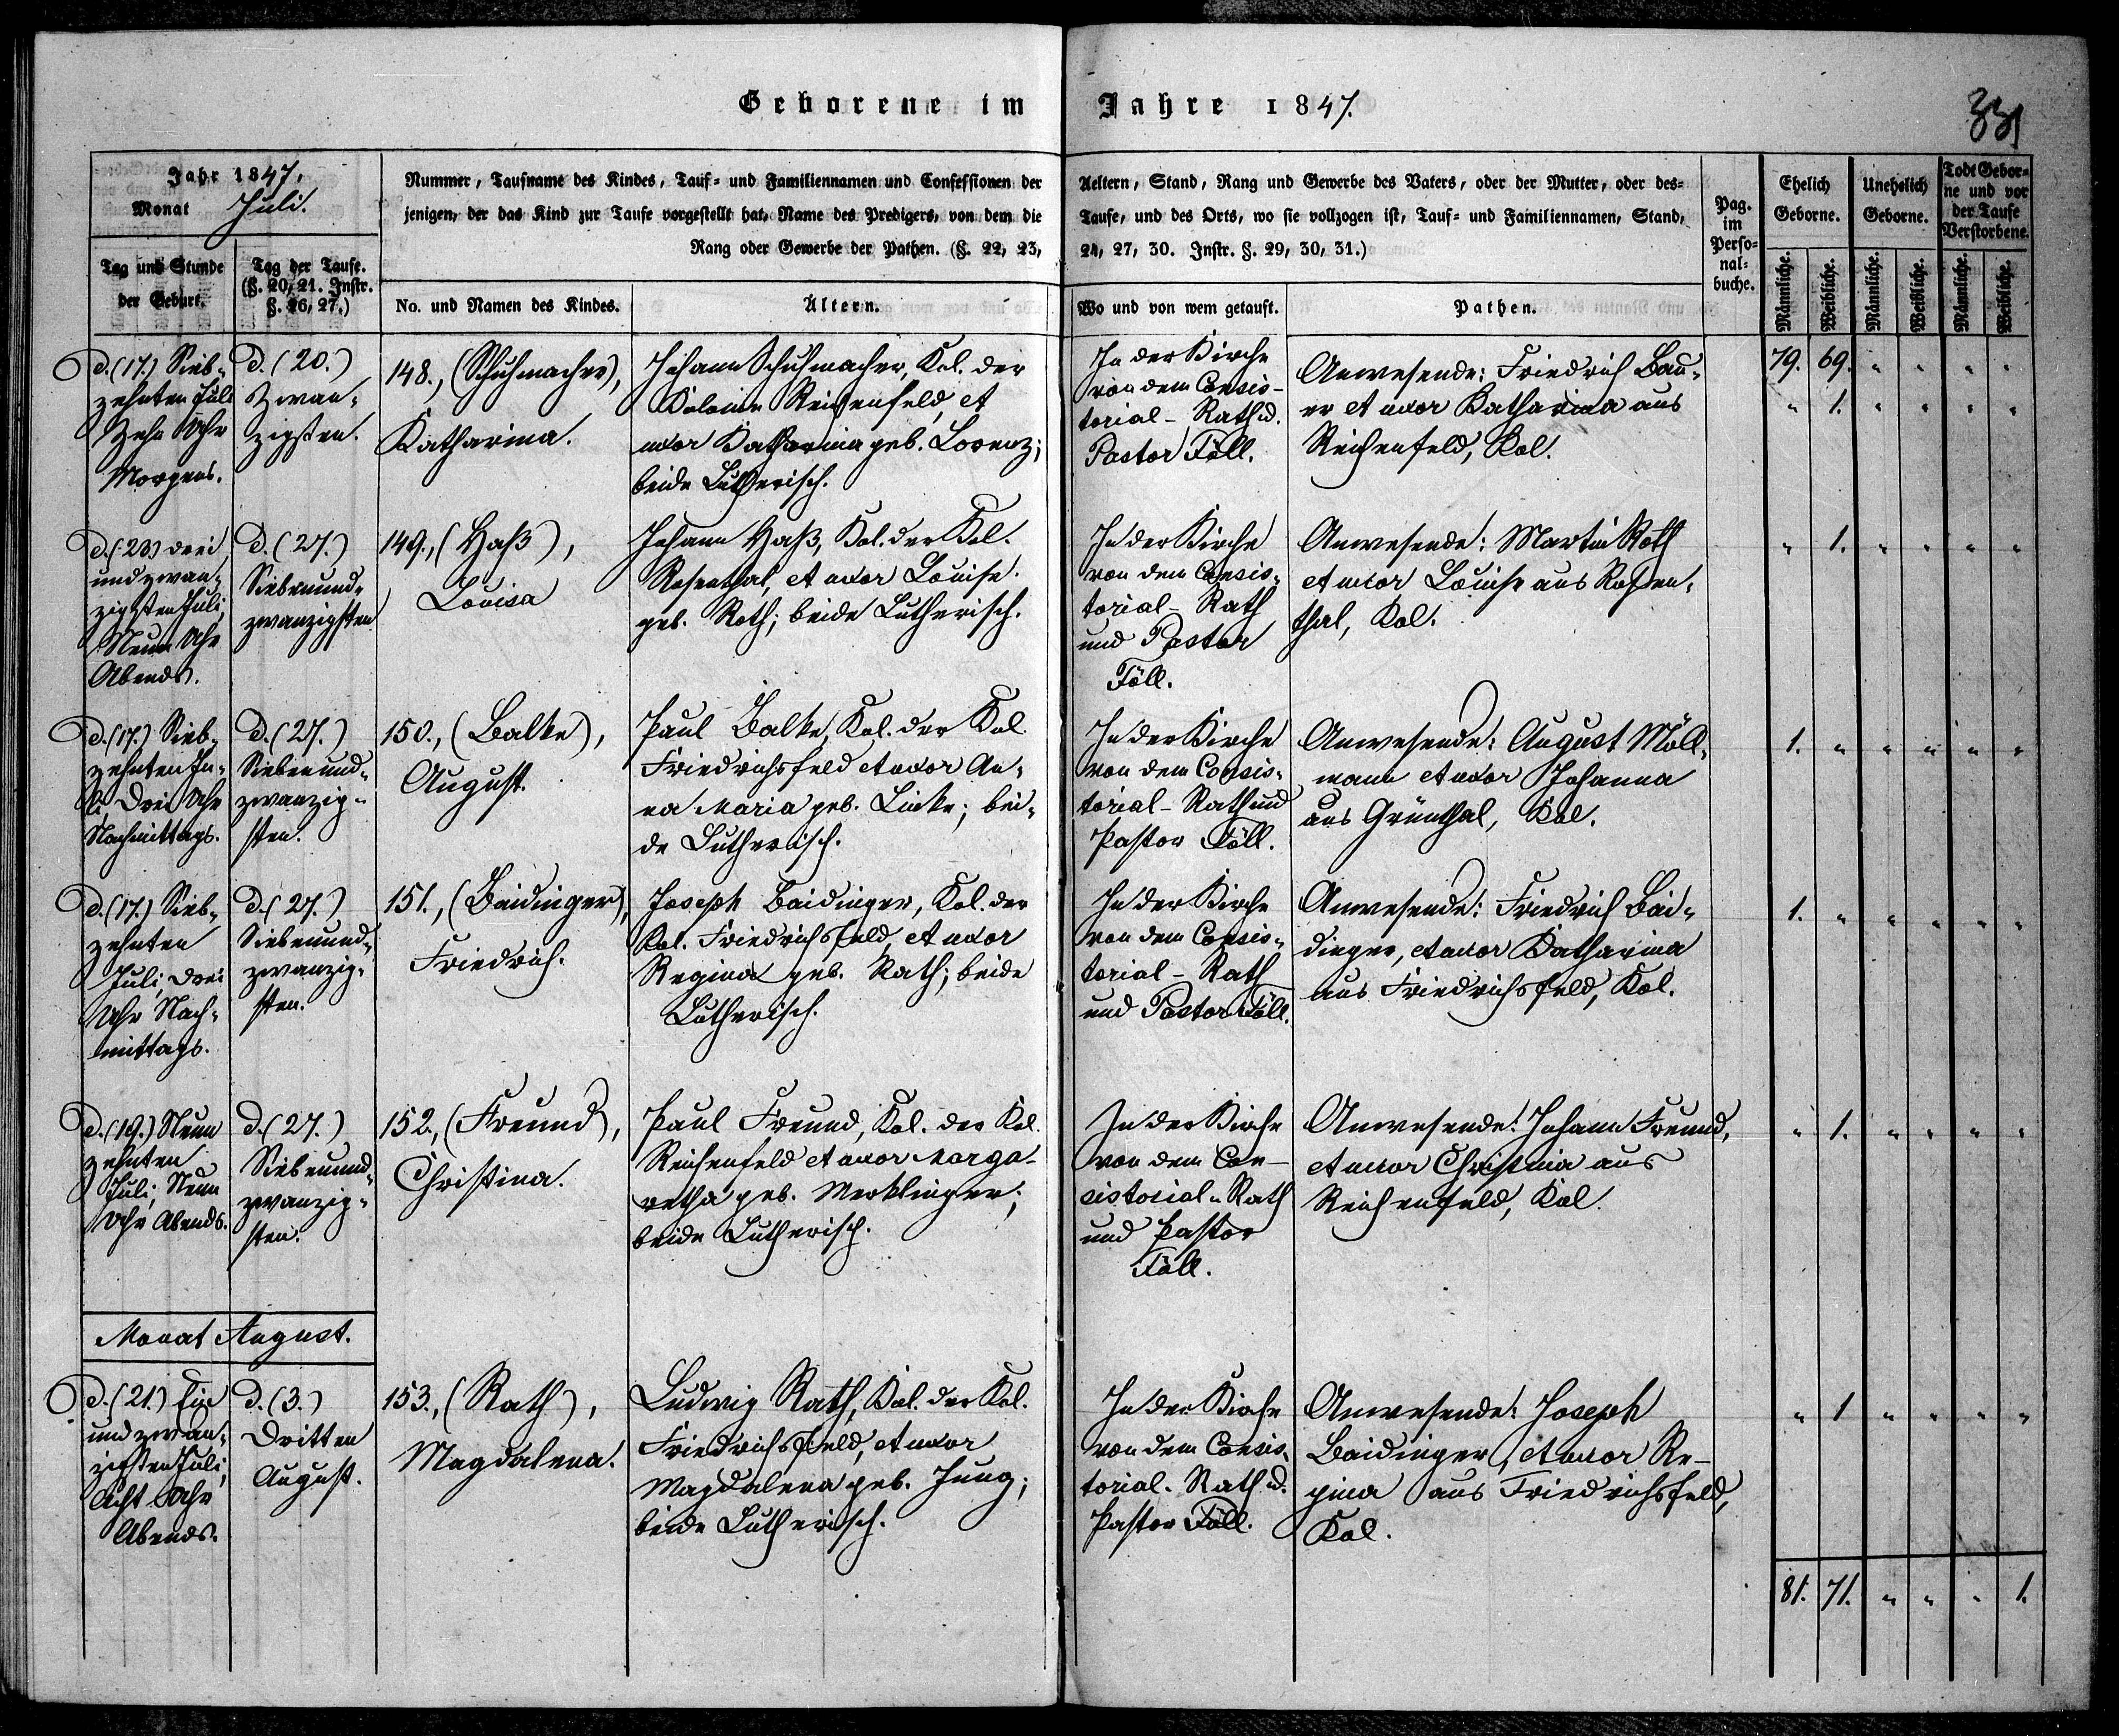 Geborene im Jahre 1847.
331
Jahr 1847.
Monat Juli.
Nummer, Taufname des Kindes, Tauf- und Familiennamen und Confessionen der Aeltern, Stand, Rang und Gewerbe des Vaters, oder der Mutter, oder des-
jenigen, der das Kind zur Taufe vorgestellt hat, Name des Predigers, von dem die Taufe, und des Orts, wo sie vollzogen ist, Tauf- und Familiennamen, Stand,
Rang oder Gewerbe der Pathen. (§. 22, 23, 24, 27, 30. Instr. §. 29, 30, 31.)
Pag.
im
Perso-
nal-
buche.
Ehelich
Geborne.
Unehelich
Geborne.
Todt Gebor-
ne und vor
der Taufe
Verstorbene.
Tag und Stunde
der Geburt.
Tag der Taufe.
(§. 20, 21. Instr.
§. 26, 27.)
No. und Namen des Kindes.
Ältern.
Wo und von wem getauft.
Pathen.
Männliche.
Weibliche.
Männliche.
Weibliche.
Männliche.
Weibliche.
d. (17.) Sieb-
zehnten Juli
Zehn Uhr
Morgens.
d. (20.)
Zwan-
zigsten.
148., (Schuhmacher),
Katharina.
Johann Schuhmacher, Kol. der
Kolonie Reichenfeld, et
uxor Katharina geb. Lorenz;
beide Lutherisch.
In der Kirche
von dem Consis-
torial-Rath u.
Pastor Föll.
Anwesende: Friedrich Bau-
er et uxor Katharina aus
Reichenfeld, Kol.
79. 69. " " " "
" 1. " " " "
d. (23) drei
und zwan-
zigsten Juli
Neun Uhr
Abends.
d. (27.)
Siebenund-
zwanzigsten
149., (Haß),
Louisa
Johann Haß, Kol. der Kol.
Rosenthal, et uxor Louise
geb. Roth; beide Lutherisch.
In der Kirche
von dem Consis-
torial-Rath
und Pastor
Föll.
Anwesende: Martin Roth
et uxor Louise aus Rosen-
thal, Kol.
" 1. " " " "
d. (17.) Sieb-
zehnten Ju-
li, Drei Uhr
Nachmittags.
d. (27.)
Siebenund-
zwanzig-
sten.
150., (Balke),
August.
Paul Balke, Kol. der Kol
Friedrichsfeld et uxor An-
na Maria geb. Linke; bei-
de Lutherisch.
In der Kirche
von dem Consis-
torial-Rath und
Pastor Föll.
Anwesende: August Möll-
mann et uxor Johanna
aus Grünthal, Kol.
1. " " " " "
d. (17.) Sieb-
zehnten
Juli, drei
Uhr Nach-
mittags.
d. (27.)
Siebenund-
zwanzig-
sten.
151., (Baidinger),
Friedrich.
Joseph Baidinger, Kol. der
Kol. Friedrichsfeld, et uxor
Regina geb. Rath; beide
Lutherisch.
In der Kirche
von dem Consis-
torial-Rath
und Pastor Föll.
Anwesende: Friedrich Bai-
dinger, et uxor Katharina
aus Friedrichsfeld, Kol.
1. " " " " "
d. (19.) Neun
zehnten
Juli, Neun
Uhr Abends.
d. (27.)
Siebenund-
zwanzig-
sten.
152., (Freund),
Christina.
Paul Freund, Kol. der Kol.
Reichenfeld et uxor Marga-
retha geb. Merklinger;
beide Lutherisch.
In der Kirche
von dem Con-
sistorial-Rath
und Pastor
Föll.
Anwesende: Johann Freund,
et uxor Christina aus
Reichenfeld, Kol.
" 1. " " " "
Monat August.
d. (21.) Ein
und zwan-
zigsten Juli,
Acht Uhr
Abends.
d. (3.)
Dritten
August.
153., (Rath),
Magdalena.
Ludwig Rath, Kol. der Kol.
Friedrichsfeld, et uxor
Magdalena geb. Jung;
beide Lutherisch.
In der Kirche
von dem Consis-
torial-Rath u.
Pastor Föll.
Anwesende: Joseph
Baidinger, et uxor Re-
gina aus Friedrichsfeld,
Kol.
" 1 " " " "
81. 71. " " " 1.